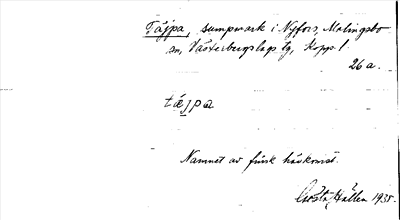 Täjpa, sumpmark i Nyfors, Malingsbo
sn, Västerbergslags lg, Kopp. l.
26 a.
täjpa
Namnet av finsk härkomst.
Gösta Hallén 1935.